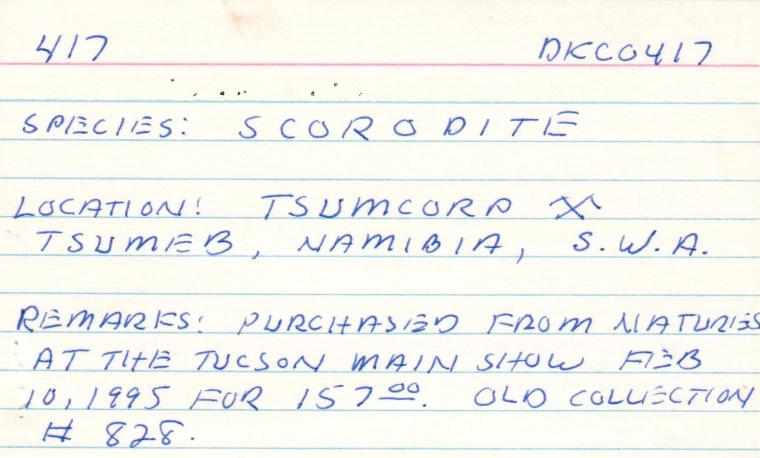 417 DKC0417
SPECIES: SCORODITE
LOCATION: TSUMCORP ⚒
TSUMEB, NAMIBIA, S.W.A.
REMARKS: PURCHASED FROM NATURES
AT THE TUCSON MAIN SHOW FEB
10, 1995 FOR 157.00. OLD COLLECTION
# 828.